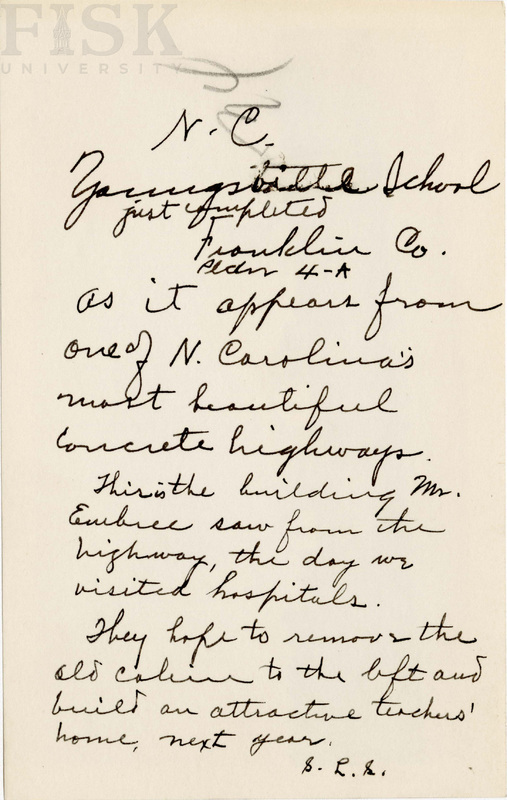 FISK
UNIVERSITY
N. C.
Youngsville School
just completed
Franklin Co.
Plan 4-A
as it appears from
one of N. Carolina's
most beautiful
concrete highways.
This is the building Mr.
Embree saw from the
highway, the day we
visited hospitals.
They hope to remove the
old cabin to the left and
build an attractive teachers'
home, next year.
S. L. S.